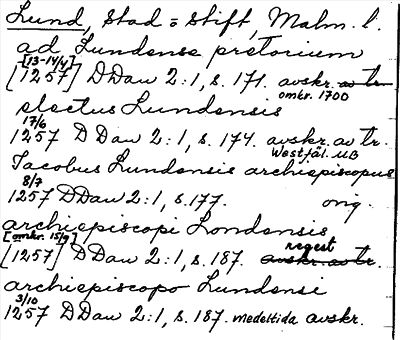 Lund, Stad = Stift, Malm. l.
ad Lundense pretorium
[13-14/4]
[1257] D Dan 2:1, s. 171. avskr. av tr.
omkr. 1700
electus Lundensis
17/6
1257 D Dan 2:1, s. 174. avskr. av tr.
Westfäl. UB
Jacobus Lundensis archiepiscopus
8/7
1257 D Dan 2:1, s. 177. orig.
archiepiscopi Londensis
[omkr. 15/9] regest
[1257] D Dan 2:1, s. 187. avskr. av tr.
archiepiscopo Lundensi
3/10
1257 D Dan 2:1, s. 187. medeltida avskr.